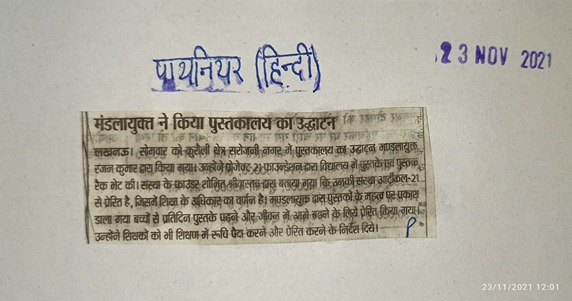 पायनियर (हिन्दी)
23 NOV 2021
मंडलायुक्त ने किया पुस्तकालय का उद्घाटन
लखनऊ। सोमवार को कुरौली क्षेत्र सरोजनी नगर में पुस्तकालय का उद्घाटन मण्डलायुक्त
रंजन कुमार द्वारा किया गया। उन्होंने प्रोजेक्ट-21 फाउन्डेशन द्वारा विद्यालय में पुस्तकें एवं पुस्तक
रैक भेंट की। संस्था के फाउंडर शोभित श्रीवास्तव द्वारा बताया गया कि उनकी संस्था आर्टीकल-21
से प्रेरित है, जिसमें शिक्षा के अधिकार का वर्णन है। मण्डलायुक्त द्वारा पुस्तकों के महत्व पर प्रकाश
डाला गया बच्चों से प्रतिदिन पुस्तकें पढ़ने और जीवन में आगे बढ़ने के लिये प्रेरित किया गया।
उन्होंने शिक्षकों को भी शिक्षण में रूचि पैदा करने और प्रेरित करने के निर्देश दिये।
23/11/2021 12:01